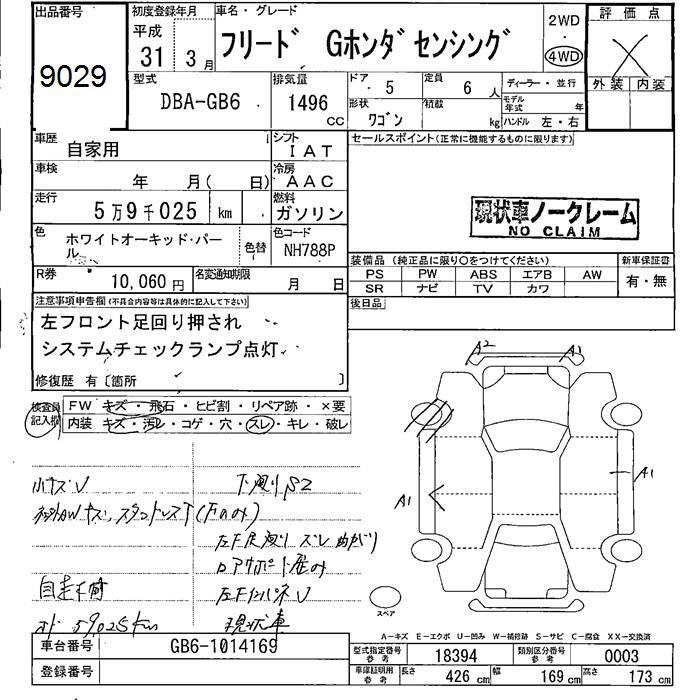 出品番号
9029
初度登録年月
平成
31 3 月
車名・グレード
フリード Gホンダセンシング
2WD
・
4WD
評価点
外装 内装
型式
DBA-GB6
排気量
1496
cc
ドア 5
定員 6 人
ディーラー・並行
形状
ワゴン
積載
kg
モデル年式 年
ハンドル 左・右
車歴
自家用
シフト
IAT
セールスポイント(正常に機能するものに限ります)
車検
年 月( 日)
冷房
AAC
走行
5万9千025 km
燃料
ガソリン
現状車ノークレーム
NO CLAIM
色
ホワイトオーキッド・パール
色替
色コード
NH788P
装備品(純正品に限り○をつけてください)
新車保証書
PS PW ABS エアB AW
SR ナビ TV カワ
有・無
R券 10,060円
名変通知期限
月 日
後日品
注意事項申告欄(不具合内容等は具体的に記入して下さい)
左フロント足回り押され
システムチェックランプ点灯
修復歴 有〔箇所 〕
検査員記入欄
FW キズ・飛石・ヒビ割・リペア跡・×要
内装 キズ・汚レ・コゲ・穴・スレ・キレ・破レ
A2 A1
A1
A1
小キズU
下廻りS2
自走不可
現状車
59,025km
スペア
A-キズ E-エクボ U-凹み W-補修跡 S-サビ C-腐食 XX-交換済
車台番号
GB6-1014169
登録番号
型式指定番号
参考
18394
類別区分番号
参考
0003
車庫証明用
参考
長さ 426 cm
幅 169 cm
高さ 173 cm